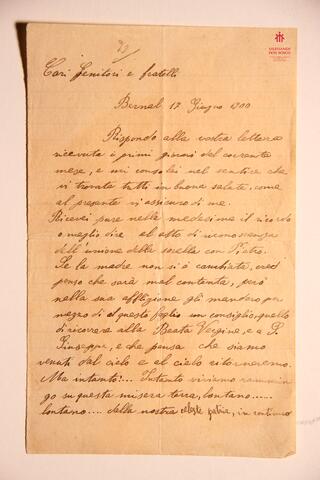 20
SALESIANOS
DON BOSCO
Cari Genitori e fratelli
Bernal 17 Giugno 1900
Rispondo alla vostra lettera
ricevuta i primi giorni del corrente
mese, e mi consolai nel sentire che
vi trovate tutti in buona salute, come
al presente vi assicuro di me.
Ricevei pure nella medesima il ricordo
o meglio dire el atto di riconoscenza
dell'unione della sorella con Pietro.
Se la madre non si è cambiata, credo
penso che sarà mal contenta, però
nella sua afflizione gli mandero per
mezzo di questo foglio un consiglio, quello
di ricorrere alla Beata Vergine, e a S.
Giuseppe, e che pensa che siamo
venuti dal cielo e al cielo ritorneremo.
Ma intanto!... Intanto viviamo rammin
go su questa misera terra, lontano.....
lontano..... della nostra celeste patria, in continuo